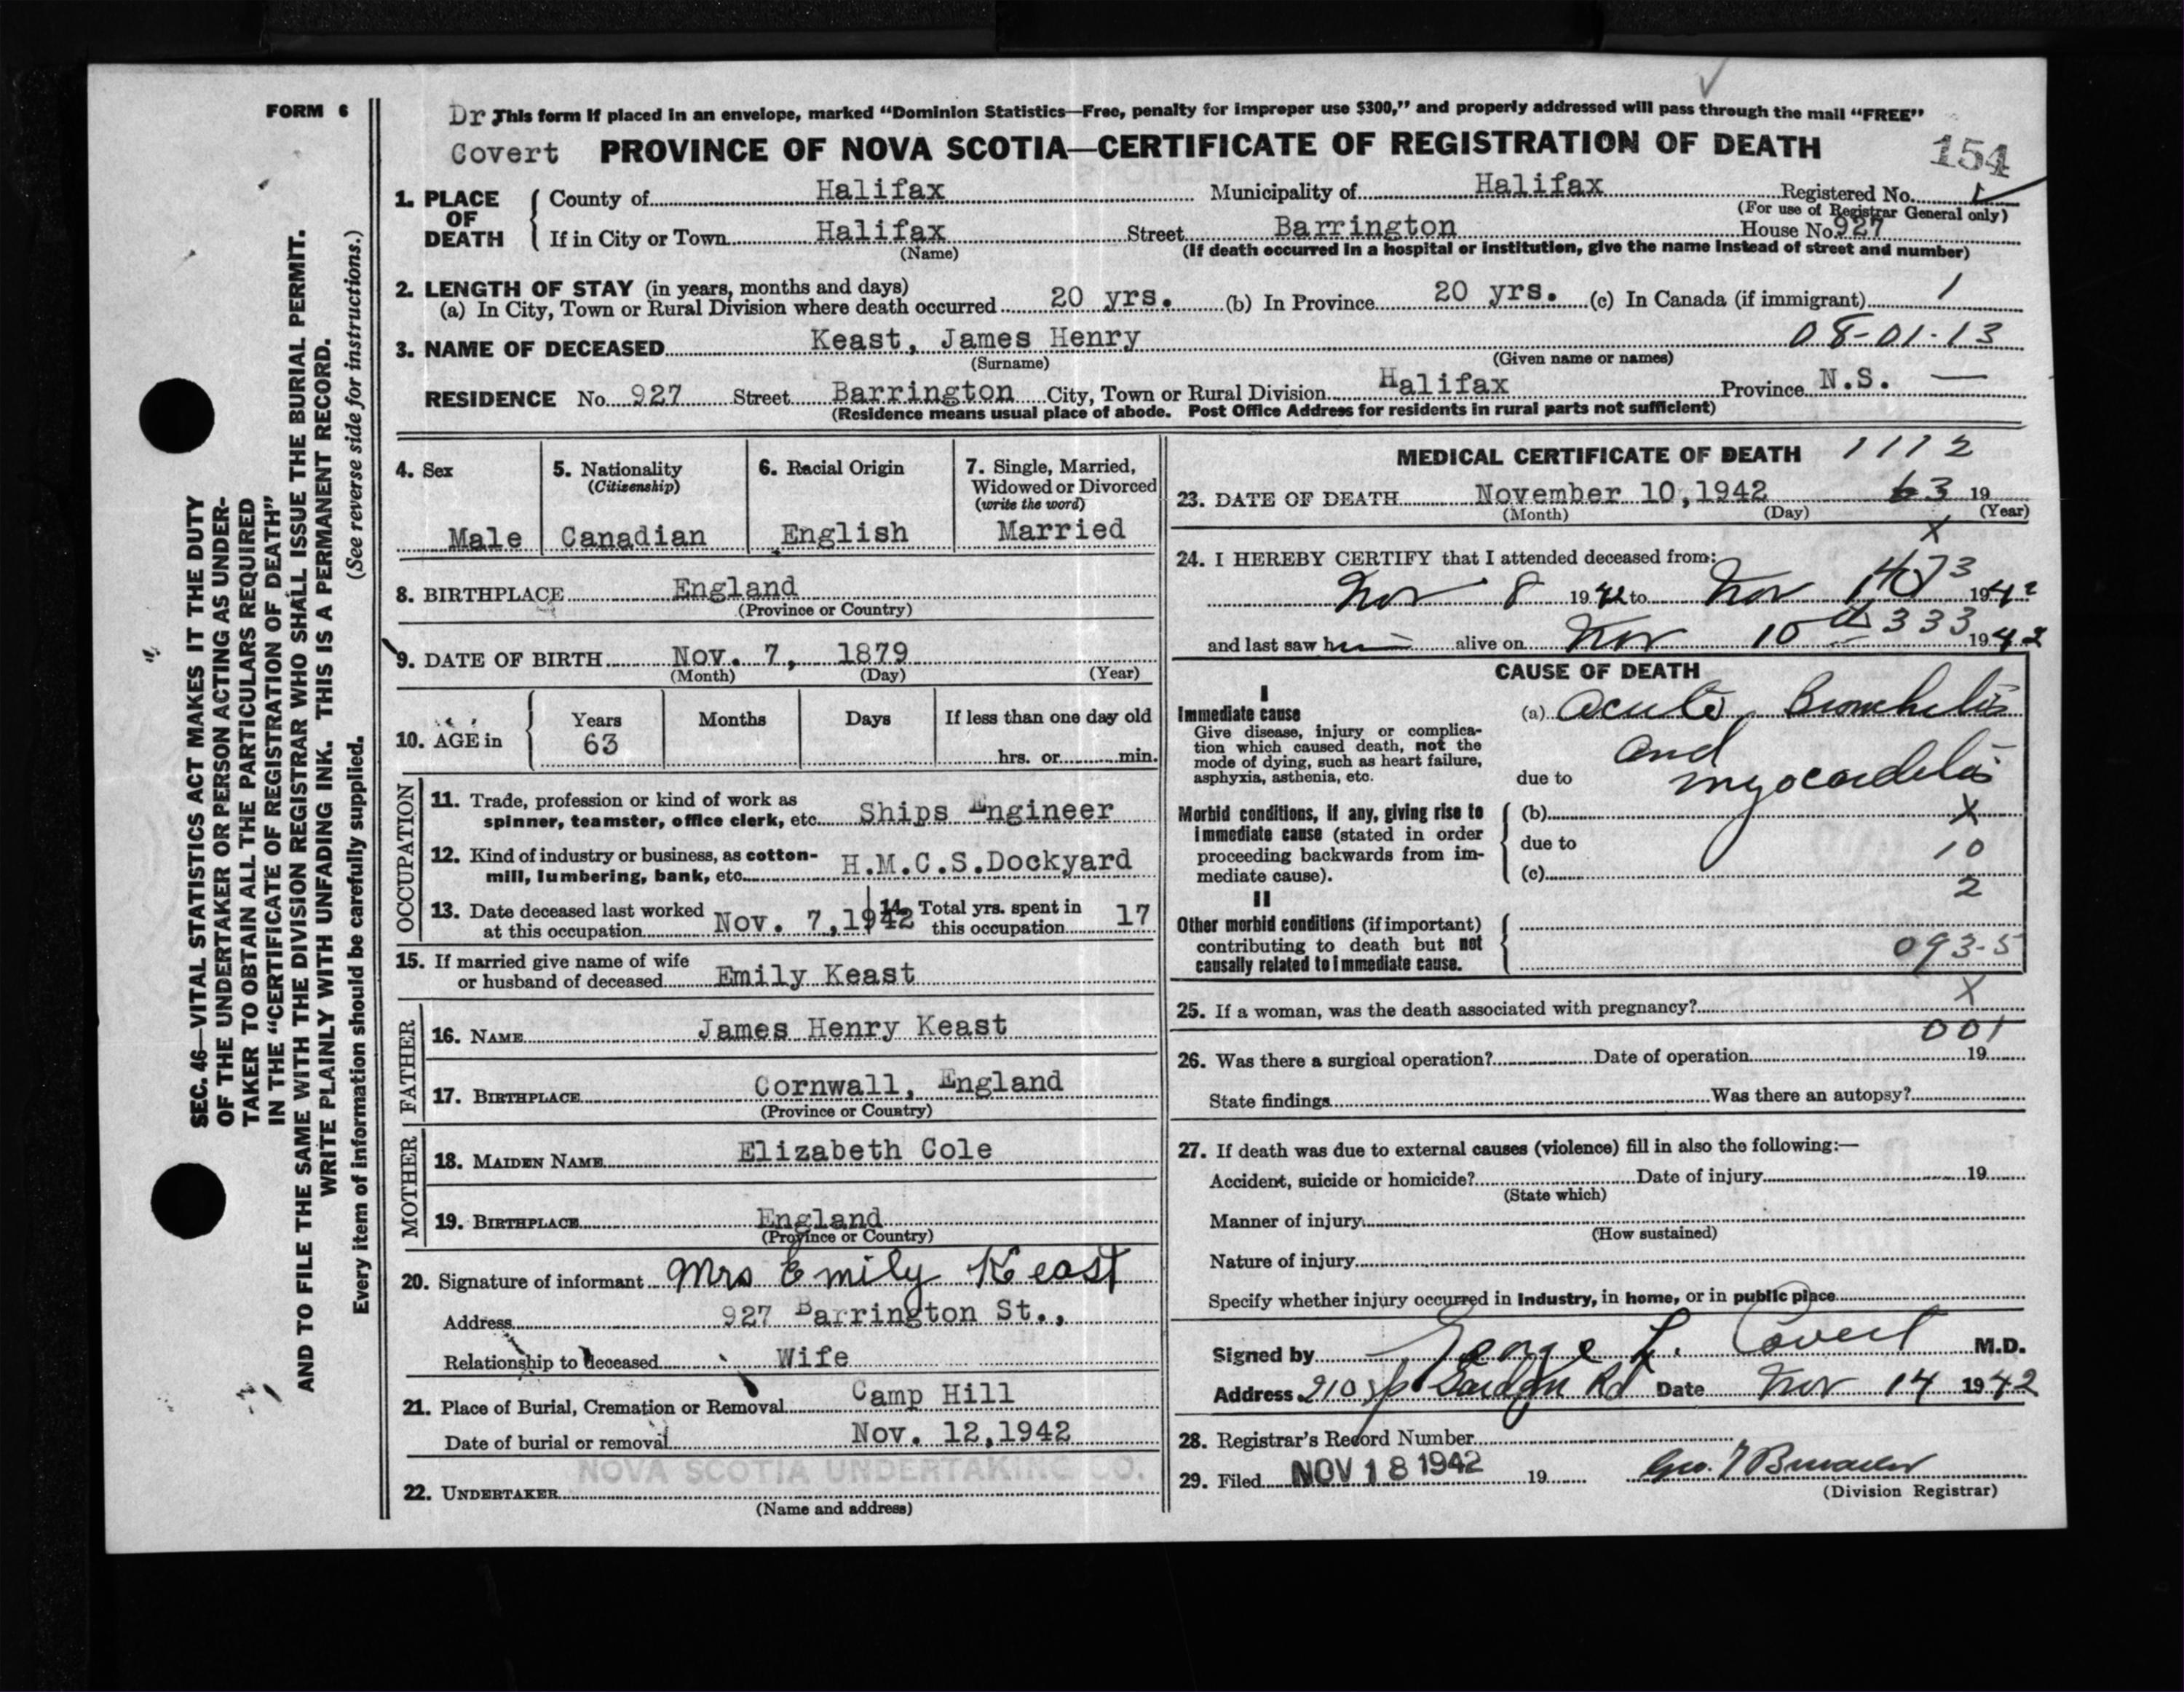 FORM 6
Dr This form if placed in an envelope, marked “Dominion Statistics—Free, penalty for improper use $300,” and properly addressed will pass through the mail “FREE”
Covert PROVINCE OF NOVA SCOTIA—CERTIFICATE OF REGISTRATION OF DEATH
154
1. PLACE OF DEATH { County of Halifax Municipality of Halifax Registered No.
(For use of Registrar General only)
If in City or Town Halifax Street Barrington House No 927
(Name) (If death occurred in a hospital or institution, give the name instead of street and number)
2. LENGTH OF STAY (in years, months and days)
(a) In City, Town or Rural Division where death occurred 20 yrs. (b) In Province 20 yrs. (c) In Canada (if immigrant) 1
3. NAME OF DECEASED Keast, James Henry 08-01-13
(Surname) (Given name or names)
RESIDENCE No. 927 Street Barrington City, Town or Rural Division Halifax Province N.S. —
(Residence means usual place of abode. Post Office Address for residents in rural parts not sufficient)
4. Sex
Male
5. Nationality
(Citizenship)
Canadian
6. Racial Origin
English
7. Single, Married,
Widowed or Divorced
(write the word)
Married
8. BIRTHPLACE England
(Province or Country)
9. DATE OF BIRTH Nov. 7, 1879
(Month) (Day) (Year)
10. AGE in { Years Months Days If less than one day old
63 hrs. or min.
OCCUPATION
11. Trade, profession or kind of work as
spinner, teamster, office clerk, etc. Ships Engineer
12. Kind of industry or business, as cotton-
mill, lumbering, bank, etc. H.M.C.S.Dockyard
13. Date deceased last worked
at this occupation Nov. 7,1942
14. Total yrs. spent in
this occupation 17
15. If married give name of wife
or husband of deceased Emily Keast
FATHER
16. NAME James Henry Keast
17. BIRTHPLACE Cornwall, England
(Province or Country)
MOTHER
18. MAIDEN NAME Elizabeth Cole
19. BIRTHPLACE England
(Province or Country)
20. Signature of informant Mrs Emily Keast
Address 927 Barrington St.,
Relationship to deceased Wife
21. Place of Burial, Cremation or Removal Camp Hill
Date of burial or removal Nov. 12,1942
NOVA SCOTIA UNDERTAKING CO.
22. UNDERTAKER
(Name and address)
MEDICAL CERTIFICATE OF DEATH 1112
23. DATE OF DEATH November 10,1942 63 19
(Month) (Day) (Year)
X
24. I HEREBY CERTIFY that I attended deceased from:
Nov 8 1942 to Nov 10 1942
and last saw him alive on Nov 10th 333 1942
CAUSE OF DEATH
I
Immediate cause
Give disease, injury or complica-
tion which caused death, not the
mode of dying, such as heart failure,
asphyxia, asthenia, etc.
(a) Acute Bronchitis
and
due to myocarditis
Morbid conditions, if any, giving rise to
immediate cause (stated in order
proceeding backwards from im-
mediate cause).
(b) X
due to 10
(c)
2
II
Other morbid conditions (if important)
contributing to death but not
causally related to immediate cause.
093-5
X
25. If a woman, was the death associated with pregnancy?
001
26. Was there a surgical operation? Date of operation 19
State findings Was there an autopsy?
27. If death was due to external causes (violence) fill in also the following:—
Accident, suicide or homicide? Date of injury 19
(State which)
Manner of injury
(How sustained)
Nature of injury
Specify whether injury occurred in industry, in home, or in public place
Signed by George L. Covert M.D.
Address 210 Rd Date Nov 14 1942
28. Registrar's Record Number
29. Filed NOV 18 1942 19
(Division Registrar)
SEC. 46—VITAL STATISTICS ACT MAKES IT THE DUTY
OF THE UNDERTAKER OR PERSON ACTING AS UNDER-
TAKER TO OBTAIN ALL THE PARTICULARS REQUIRED
IN THE “CERTIFICATE OF REGISTRATION OF DEATH”
AND TO FILE THE SAME WITH THE DIVISION REGISTRAR WHO SHALL ISSUE THE BURIAL PERMIT.
WRITE PLAINLY WITH UNFADING INK. THIS IS A PERMANENT RECORD.
Every item of information should be carefully supplied. (See reverse side for instructions.)